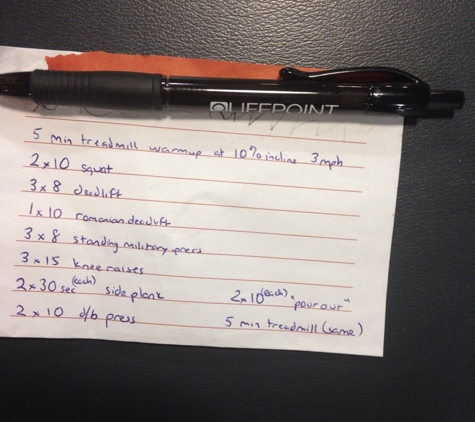 LIFEPOINT
5 min treadmill warmup at 10% incline 3mph
2x10 squat
3x8 deadlift
1x10 romanian deadlift
3x8 standing military press
3x15 knee raises
2x30 sec (each) side plank
2x10 d/b press
2x10 (each) "pour our"
5 min treadmill (same)